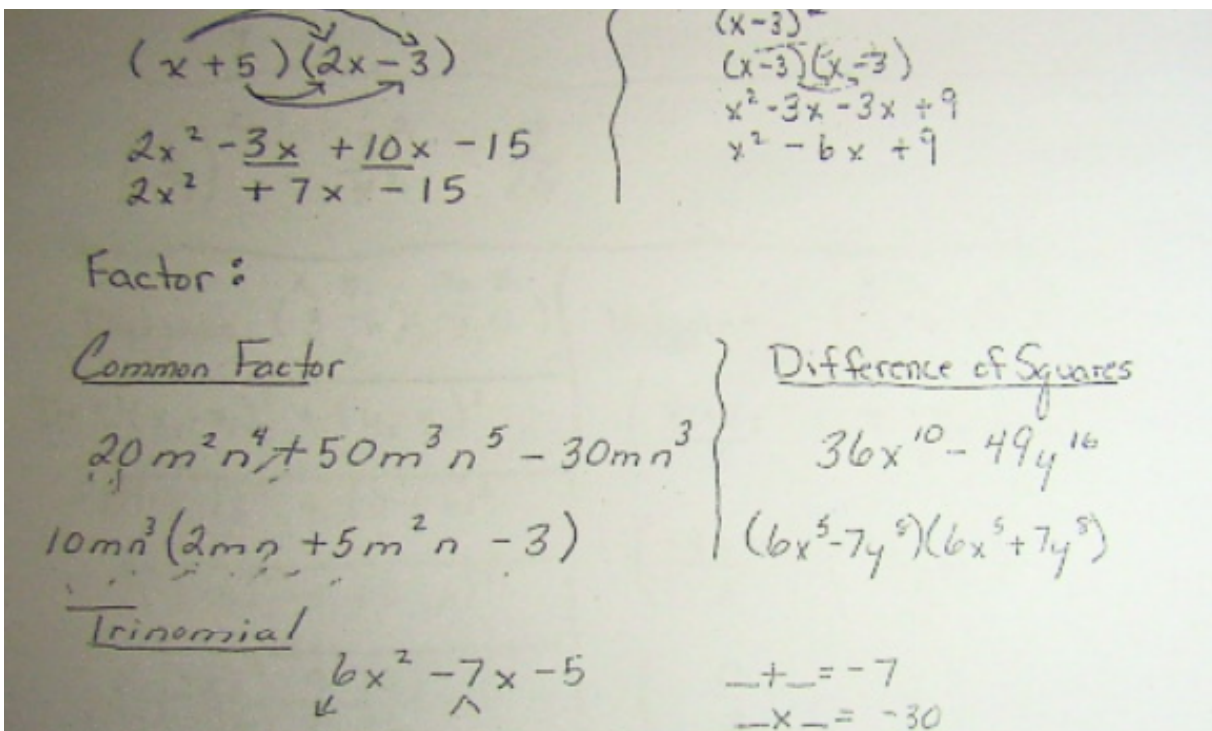 (x+5)(2x-3)
2x² - 3x + 10x - 15
2x² + 7x - 15
(x-3)²
(x-3)(x-3)
x² - 3x - 3x + 9
x² - 6x + 9
Factor:
Common Factor
20m²n⁴ + 50m³n⁵ - 30mn³
10mn³(2mn + 5m²n - 3)
Difference of Squares
36x¹⁰ - 49y¹⁶
(6x⁵-7y⁸)(6x⁵+7y⁸)
Trinomial
6x² - 7x - 5
_+_= -7
_x_= -30